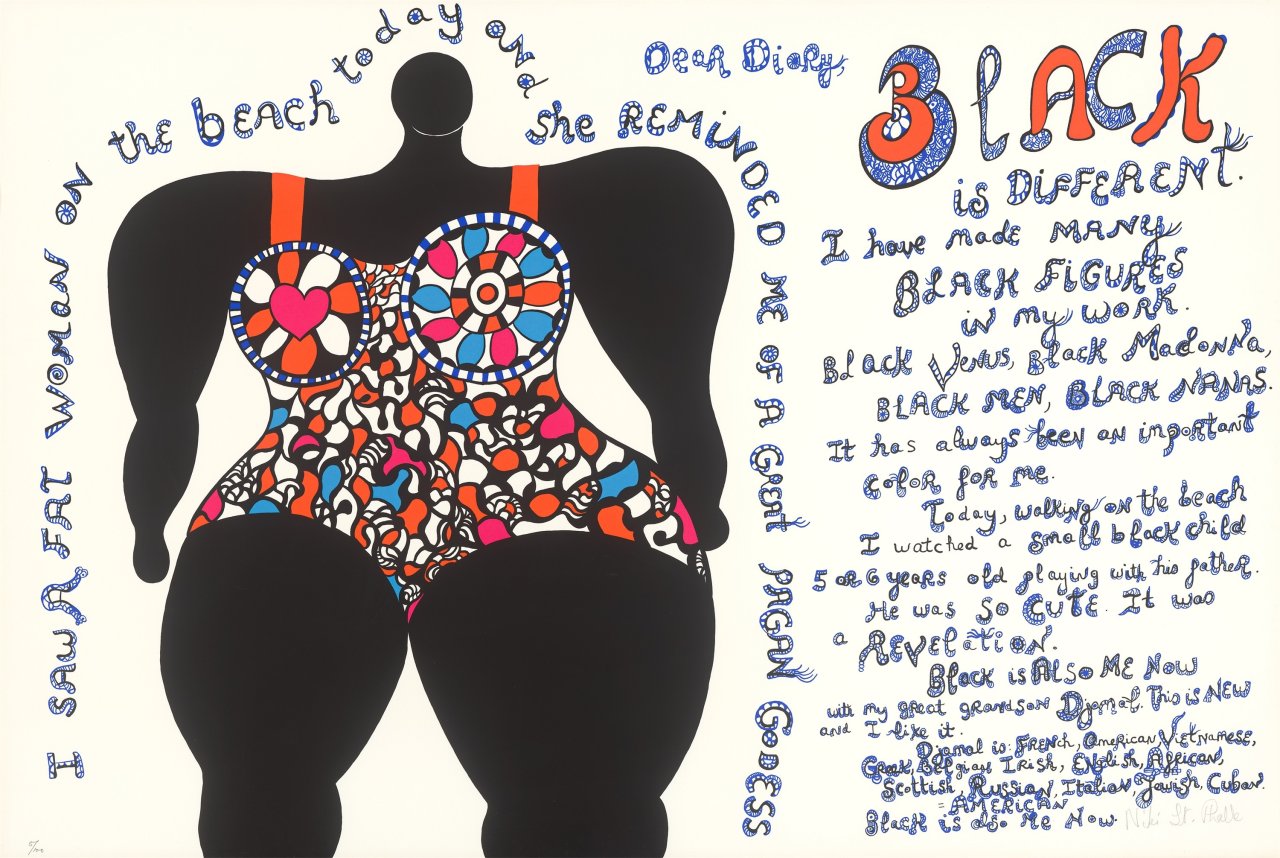 I SAW A FAT WOMAN ON the BEACH today and she REMINDED ME OF A GREAT PAGAN GODESS
Dear Diary,
BLACK
is DIFFERENT.
I have made MANY
BLACK FIGURES
in my work.
Black Venus, Black Madonna,
BLACK MEN, BLACK NANAS.
It has always been an important
color for me.
Today, walking on the beach
I watched a small black child
5 or 6 years old playing with his father.
He was SO CUTE. It was
a REVELATION.
Black is Also Me Now
with my great grandson Djamal. This is NEW
and I like it.
Djamal is: FRENCH, American Vietnamese,
Greek, Belgian Irish, English, African,
Scottish, Russian, Italian, Jewish, Cuban.
= AMERICAN
Black is also Me Now.
Niki St. Phalle